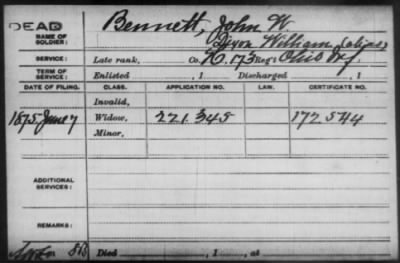 DEAD Bennett, John W.
NAME OF SOLDIER: Dixon William (alias)
SERVICE: Late rank, Co. K, 173 Reg't Ohio Inf.
TERM OF SERVICE: Enlisted , 1 Discharged , 1
DATE OF FILING. CLASS. APPLICATION NO. LAW. CERTIFICATE NO.
Invalid,
1875 June 7 Widow, 221.345 172544
Minor,
ADDITIONAL SERVICES:
REMARKS:
Died , 1 , at